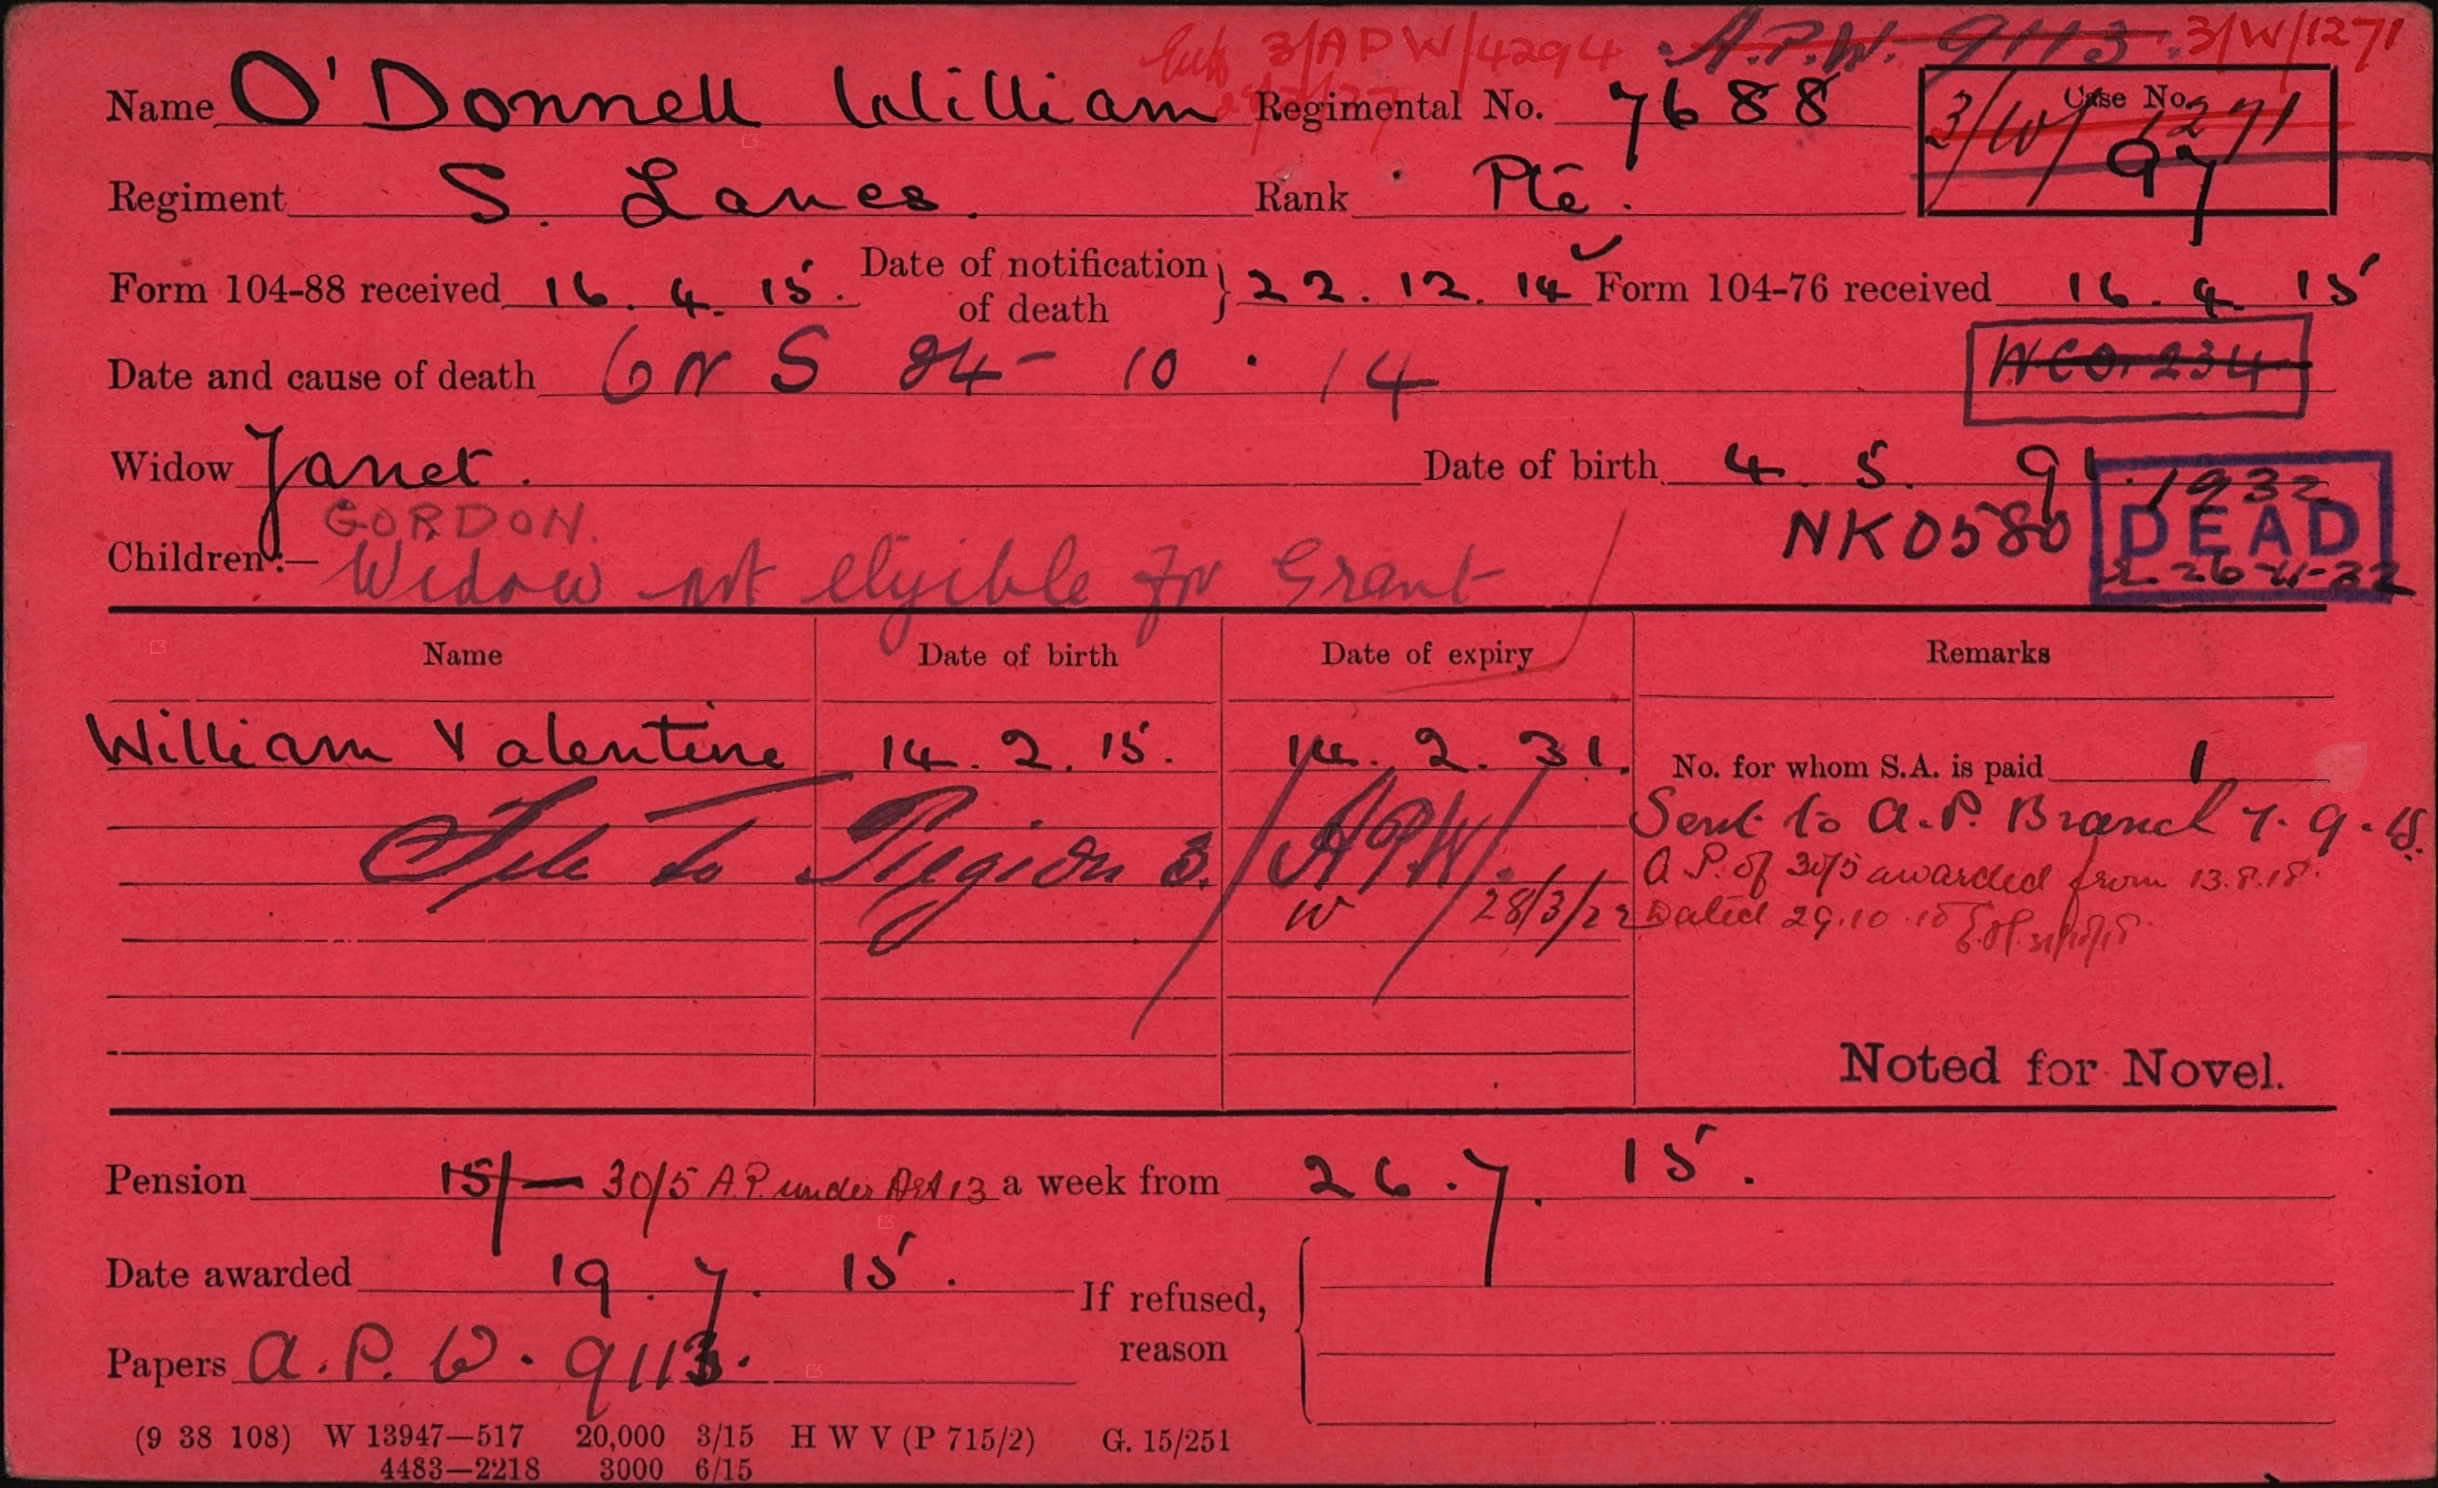 3/APW/4294 A.P.W. 9113. 3/W/1271
Name O'Donnell William Regimental No. 7688 Case No.
3/W/ 1271
97
Regiment S. Lancs. Rank Pte.
Form 104-88 received 16. 4. 15. Date of notification of death } 22. 12. 14 Form 104-76 received 16. 4. 15
Date and cause of death 24 - 10 . 14 WCO. 234
Widow Janet. Date of birth 4. 5. 91.
GORDON. NK0580 1932
DEAD
26-4-32
Children:— Widow not eligible for Grant
Name Date of birth Date of expiry Remarks
William Valentine 14. 2. 15. 14. 2. 31. No. for whom S.A. is paid 1
Sent to A.P. Branch 7. 9. 18.
File to Region 3. / APW / A.P. of 30/5 awarded from 13.8.18.
W 28/3/22 Dated 29.10.18
Noted for Novel.
Pension 15/— 30/5 A.P. under Art 13 a week from 26. 7. 15.
Date awarded 19. 7. 15.
If refused, reason
Papers A.P.W. 9113.
(9 38 108) W 13947—517 20,000 3/15 H W V (P 715/2) G. 15/251
4483—2218 3000 6/15